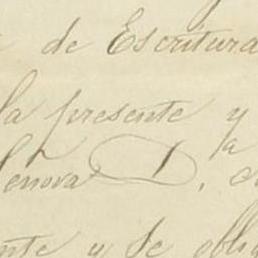 de Escritura
la presente y
lenova D.ª
nte y se obli